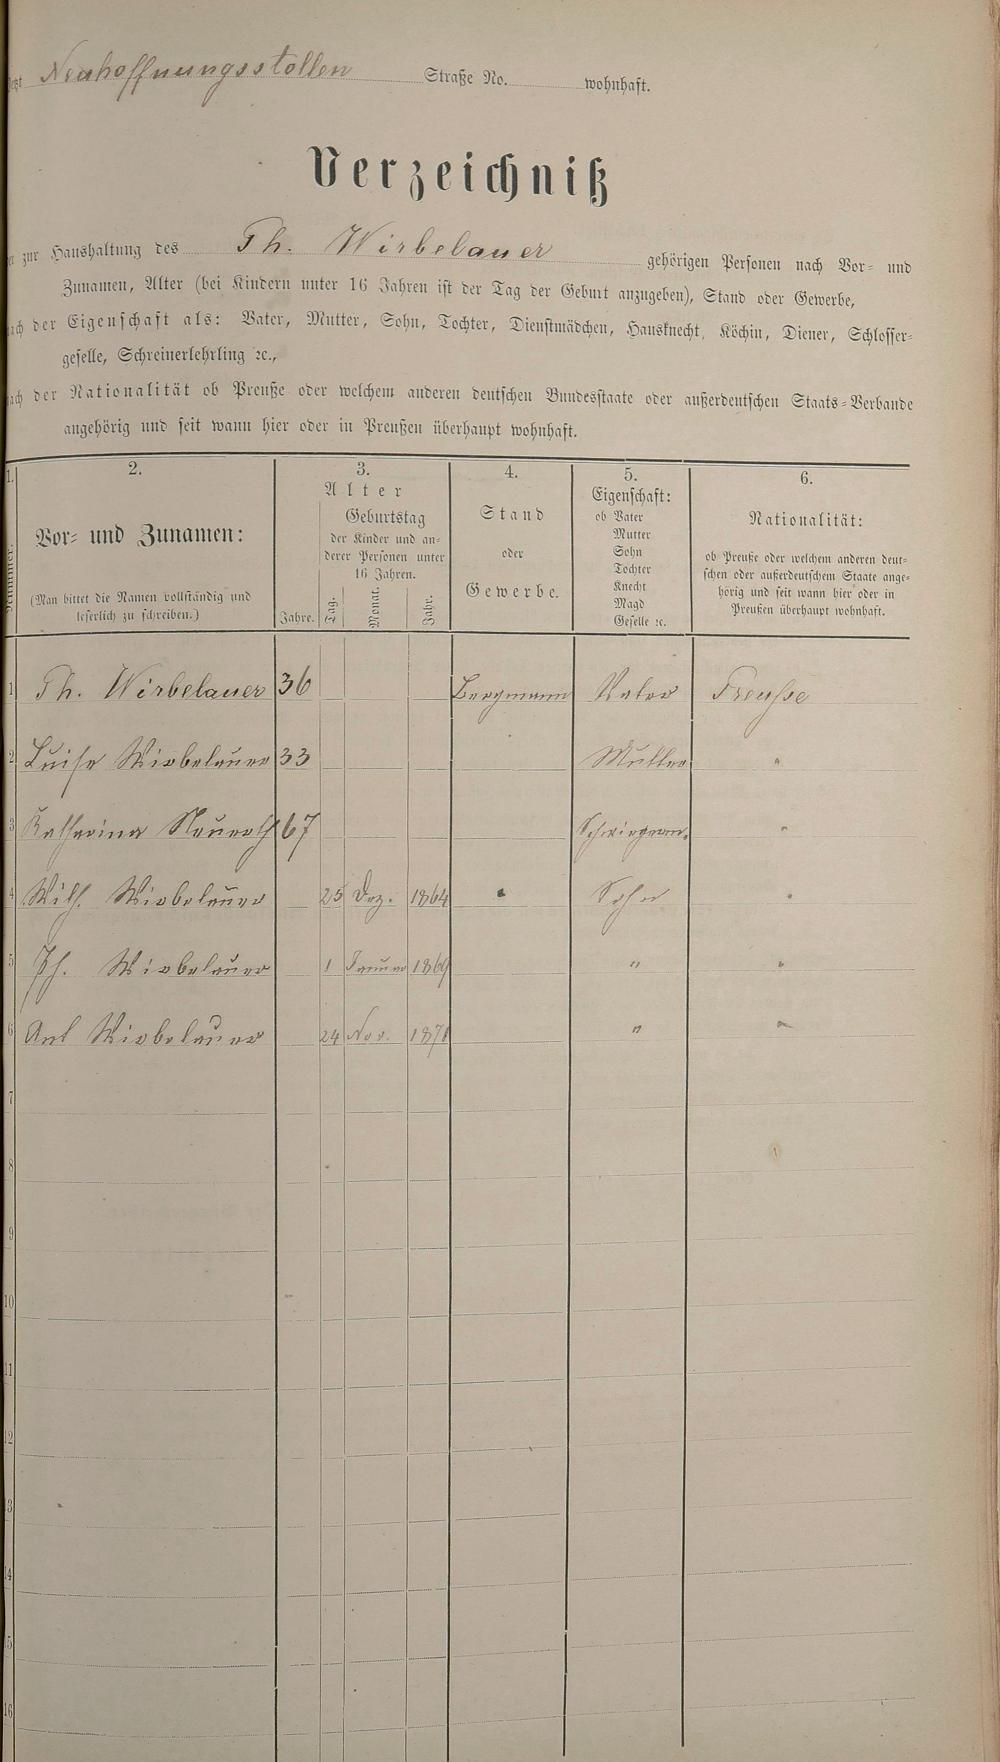 Jetzt Neuhoffnungsstollen Straße No. wohnhaft.
Verzeichniß
der zur Haushaltung des Th. Wirbelauer gehörigen Personen nach Vor- und
Zunamen, Alter (bei Kindern unter 16 Jahren ist der Tag der Geburt anzugeben), Stand oder Gewerbe,
nach der Eigenschaft als: Vater, Mutter, Sohn, Tochter, Dienstmädchen, Hausknecht, Köchin, Diener, Schlosser-
geselle, Schreinerlehrling ꝛc.,
nach der Nationalität ob Preuße oder welchem anderen deutschen Bundesstaate oder außerdeutschen Staats-Verbande
angehörig und seit wann hier oder in Preußen überhaupt wohnhaft.
1. 2. 3. 4. 5. 6.
Nummer.
Vor- und Zunamen:
(Man bittet die Namen vollständig und
leserlich zu schreiben.)
Alter
Geburtstag
der Kinder und an-
derer Personen unter
16 Jahren.
Jahre. Tag. Monat. Jahr.
Stand
oder
Gewerbe.
Eigenschaft:
ob Vater
Mutter
Sohn
Tochter
Knecht
Magd
Geselle ꝛc.
Nationalität:
ob Preuße oder welchem anderen deut-
schen oder außerdeutschem Staate ange-
hörig und seit wann hier oder in
Preußen überhaupt wohnhaft.
1 Th. Wirbelauer 36 Bergmann Vater Preusse
2 Luise Wirbelauer 33 Mutter "
3 Katharina Neuroth 67 "
4 Wilh. Wirbelauer 25 Dez. 1864 " Sohn "
5 Wirbelauer 1 Januar 1869 " "
6 Ant Wirbelauer 24 Nov. 1871 " "
7
8
9
10
11
12
13
14
15
16